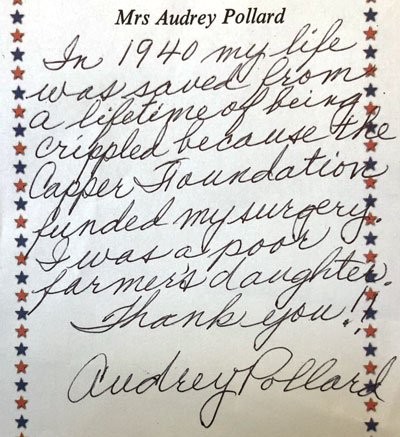 Mrs Audrey Pollard
In 1940 my life
was saved from
a lifetime of being
crippled because the
Capper Foundation
funded my surgery.
I was a poor
farmer's daughter.
Thank you!!
Audrey Pollard